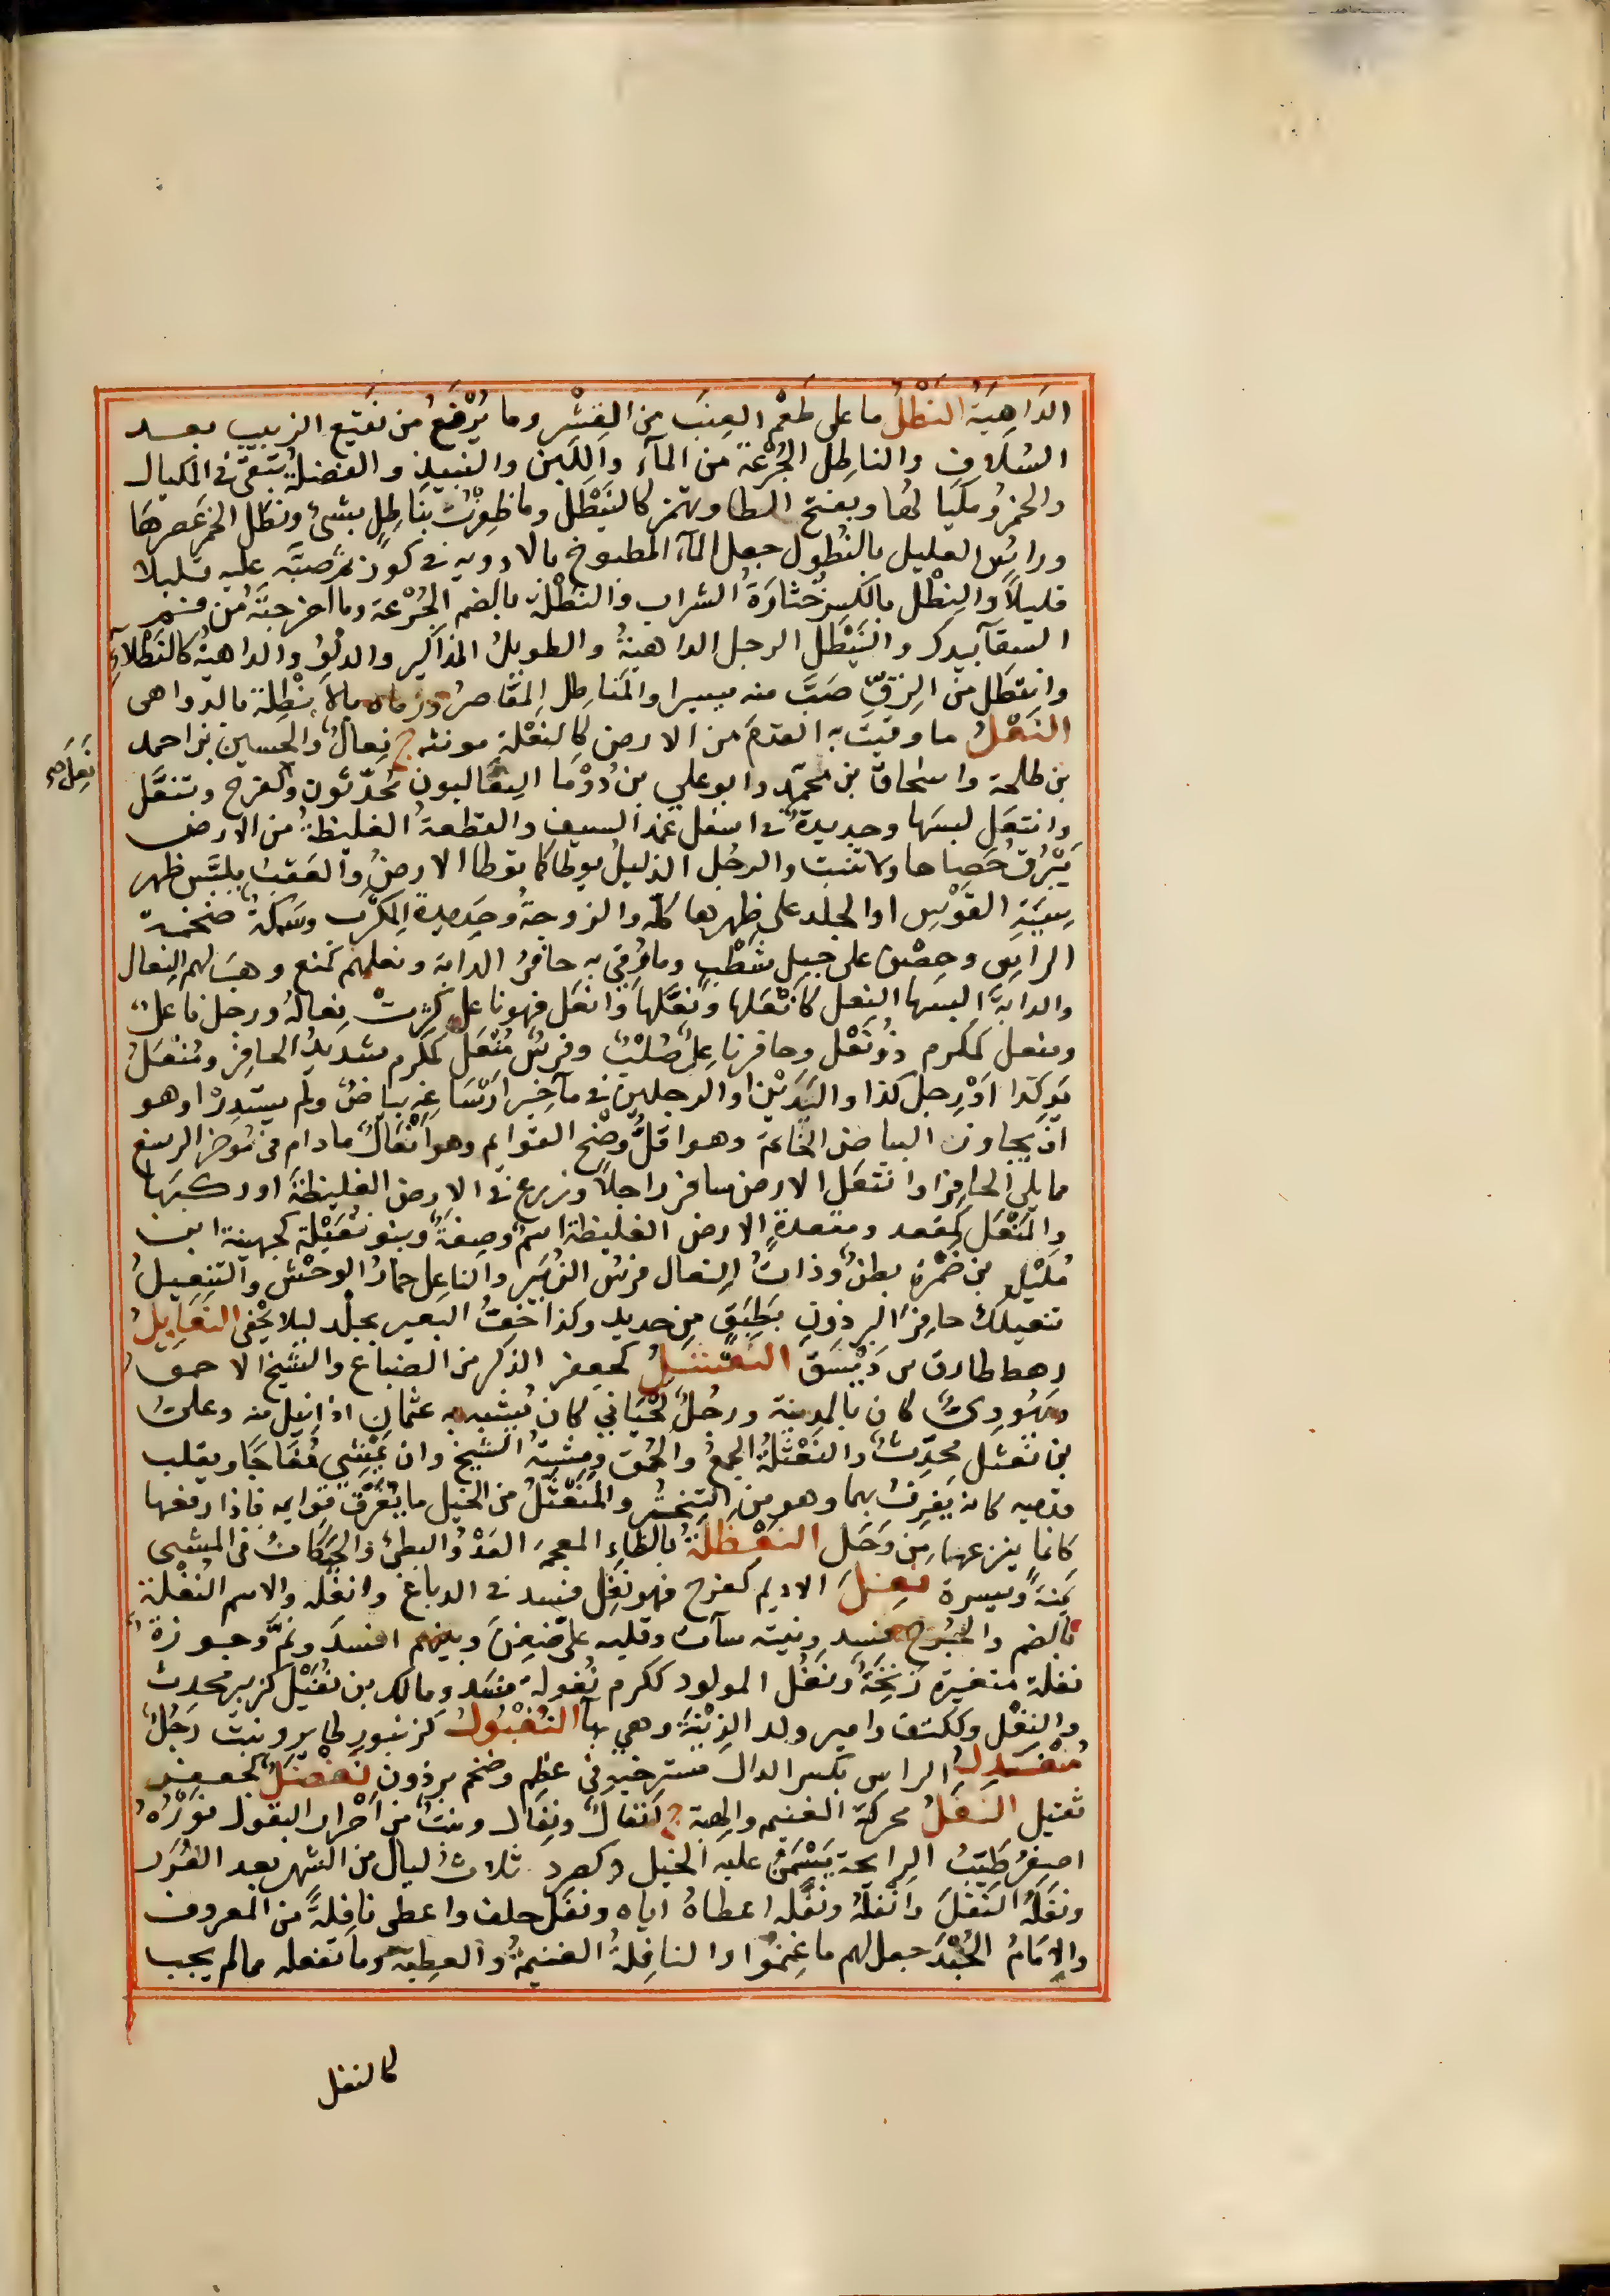 الدَاهِيَةُ النَطْلُ ما على طَعْمِ العِنَبِ من القِشْرِ وما يُرْفَعُ من نَقيعِ الزبيبِ بعد
السُلافِ والناطِلُ الجُرْعَةُ من المآءِ واللَبَنِ والنبيذِ والفضلةُ تبقى في المكيال
والخمرُ ومكيالها وبفتح الطا ويهمز كالنَيْطَلِ وما ظفِرتُ بناطِلٍ بشئ ونطل الخمر عصرها
وراسَ العليل بالنُطُولِ جعل المآء المطبوخ بالادويه في كوز ثم صبَّه عليه قليلا
قليلاً والنِطْل بالكسر خُثارَةُ الشراب والنُطْلة بالضم الجُرْعَة وما اخرجتَهُ من فم
السقآ بيدك والنَيْطَل الرجل الداهيةُ والطويلُ المذاكير والدَلوُ والداهيةُ كالنَطْلآءِ
وانتطل من الزِقِّ صَبَّ منه يسيرا والمَناطِل المَعاصِرُ ورماه بالانْطِلة بالدواهى
النَعْلُ ما وقيتَ به القدَمَ من الارض كالنَعْلةِ مونثه ج نِعالٌ والحسين بن احمد
بن طلحة واسْحاقُ بن محمّد وابو علي بن دُوْمَا النِعَاليون مُحَدّثون وكفرح وتنعَّل
وانتعَل لبسَها وحديدةٌ في اسفل غمد السيف والقطعةُ الغليظةُ من الارض
يَبْرُقُ حَصاها ولا تنبت والرجُل الذليلُ يوطا كما توطا الارضُ والعَقَبُ يلبَّس ظهر
سِيَةِ القَوْسِ او الجلد على ظهرها كلّه والزوجةُ وحَديدةُ المِكْرَب وسَمكةٌ ضخمة
الراسِ وحِصْن على جبل شَطْبٍ وما وُقِيَ به حافرُ الدابة ونعلهم كمنع وهبَ لهم النعال
والدابةَ البسَها النعل كاَنْعَلها ونَعَّلها وانعَل فهو ناعل كثرتْ نِعالُه ورجل ناعلٌ
ومنعل كمكرم ذُونَعْل وحافر ناعِلٌ صُلْبٌ وفرسٌ مُنْعَلٌ كمكرم شديدُ الحافِرِ ومُنْعَلُ
يَدِ كَذا اوْ رِجل كذا واليَدَيْن او الرجلين في مآخير ارْسَاغه بياضٌ ولم يستدِرْ او هو
ان يجاوز البياض الخاتمَ وهو اقلُّ وضَحِ القوايم وهو اِنْعَالٌ ما دام في موخر الرسغ
مما يلي الحافِرَ وانتعَل الارض سافر راجلاً وزرع في الارض الغليظة او ركبَها
والمَنْعَل كمقعد ومقعدةٍ الارض الغليظة اسمٌ وصِفَةٌ وبنو نُعَيْلة كجهينة ابن
مُلَيْل بن ضَمْرة بطنٌ وذاتُ النعال فرسُ الزُبَيْر والناعِل حمارُ الوحْش والتنعيلُ
تنعيلك حافِرَ البرذونِ بطَبَقٍ من حديد وكذا خُفُّ البعير بجلْد ليلا يَحْفى النَعَابِلُ
رهط طارق بن دَيْسَقٍ النَعْثَلُ كجعفر الذكر من الضباع والشيخ الاحمق
ويهُودِيٌّ كان بالمدينة ورجُلٌ لِحْيَانيٌّ كان يُشَبه به عثمان اذا نيل منه وعليُّ
بن نعثل محدِّثٌ والنَعْثَلةُ الجمعُ والحُمق ومِشْيَةُ الشيخ وان يمْشِيَ مُفَاجًّا ويقلب
قدميه كانه يَغرِفُ بهما وهو من التبختر والمُنَعْثَلُ من الخيل ما يُفَرِّق قوايمه فاذا رفعها
كانما ينزعها من وَحَل النَعْظَلَةُ بالظاء المعجمه العَدْوُ البطئ والحَيَكانُ في المشى
يَمنَةً ويسرة نَغِلَ الاديم كفرح فهو نَغِل فسد في الدباغ وانغَله والاسم النُغْلة
بالضم والجُرْح فسد ونيته سآت وقلبه على ضغِنَ وبينهم افسدَ ونَمَّ وجوزةٌ
نغلة متغيرة زنِخَةٌ ونغل المولود ككرم نُغولة فسَد ومالك بن نُغَيْل كزبير محدث
والنَغْل وككتف وامير ولد الزِنْيَة وهي بهآ النُغْبُولُ كزنبور طاير ونبت رَجُلٌ
مُنَغْدِلُ الراس بكسر الدال مسترخيه في عظم وضخم برذون نَغْضَلٌ كجعفر
ثقيل النَفَلُ محركة الغنيمه والهبة ج اَنفالٌ ونِفال ونبتٌ من احْرار البقول نَوْرُهُ
اصفرُ طَيّبُ الرايحة يَسْمَنُ عليه الخيل وكصرد ثلاثُ ليال من الشهر بعد الغُرَر
ونَفَلهُ النَفَلَ وانْفلَهُ ونَفَّله اعطاهُ اياه ونفَل حلف واعطى نافِلةً من المعروف
والاِمَامُ الجُنْدَ جعل لهم ما غَنِموا والنافِلةُ الغنيمةُ والعطِيّة وما تفعله مما لم يجب
نَعِلَ صح
كالنفل